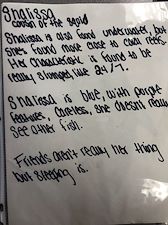 Shalissa
cousin to the squid
Shalissa is also found underwater, but
she's found more close to coral reefs.
Her characteristic is found to be
really slumped like 24/7.
Shalissa is blue, with purple
features, careless, she doesn't really
see other fish.
Friends aren't really her thing
but sleeping is.